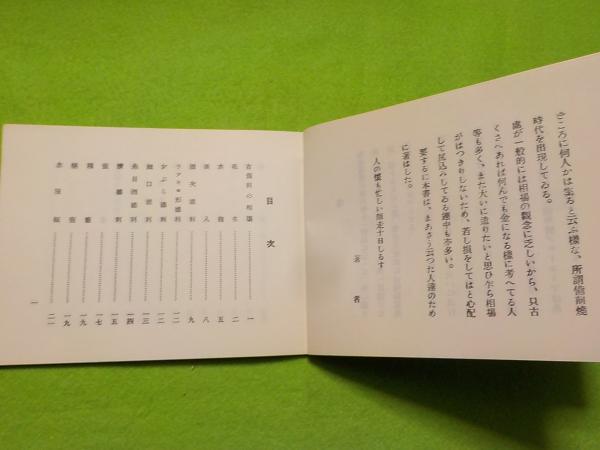 ところに何人かは集ると云ふ樣な、所謂備前燒
時代を出現してゐる。
處が一般的には相場の觀念に乏しいから、只古
くさへあれば何んでも金になる樣に考へてる人
等も多く、また大いに造りたいと思ひ乍ら相場
がはつきりしないため、若し損をしてはと心配
して尻込みしてゐる連中も亦多い。
要するに本書は、まあさう云つた人達のため
に著はした。
人の懷も忙しい師走十日しるす
著者
目次
古備前の相場 一
花生 二
水指 五
茶入 八
德利 九
德利 一二
かぶら德利 一二
口德利 一三
德利 一四
德利 一五
壷 一七
種壷 一九
壷 一九
水屋甕 二一
一